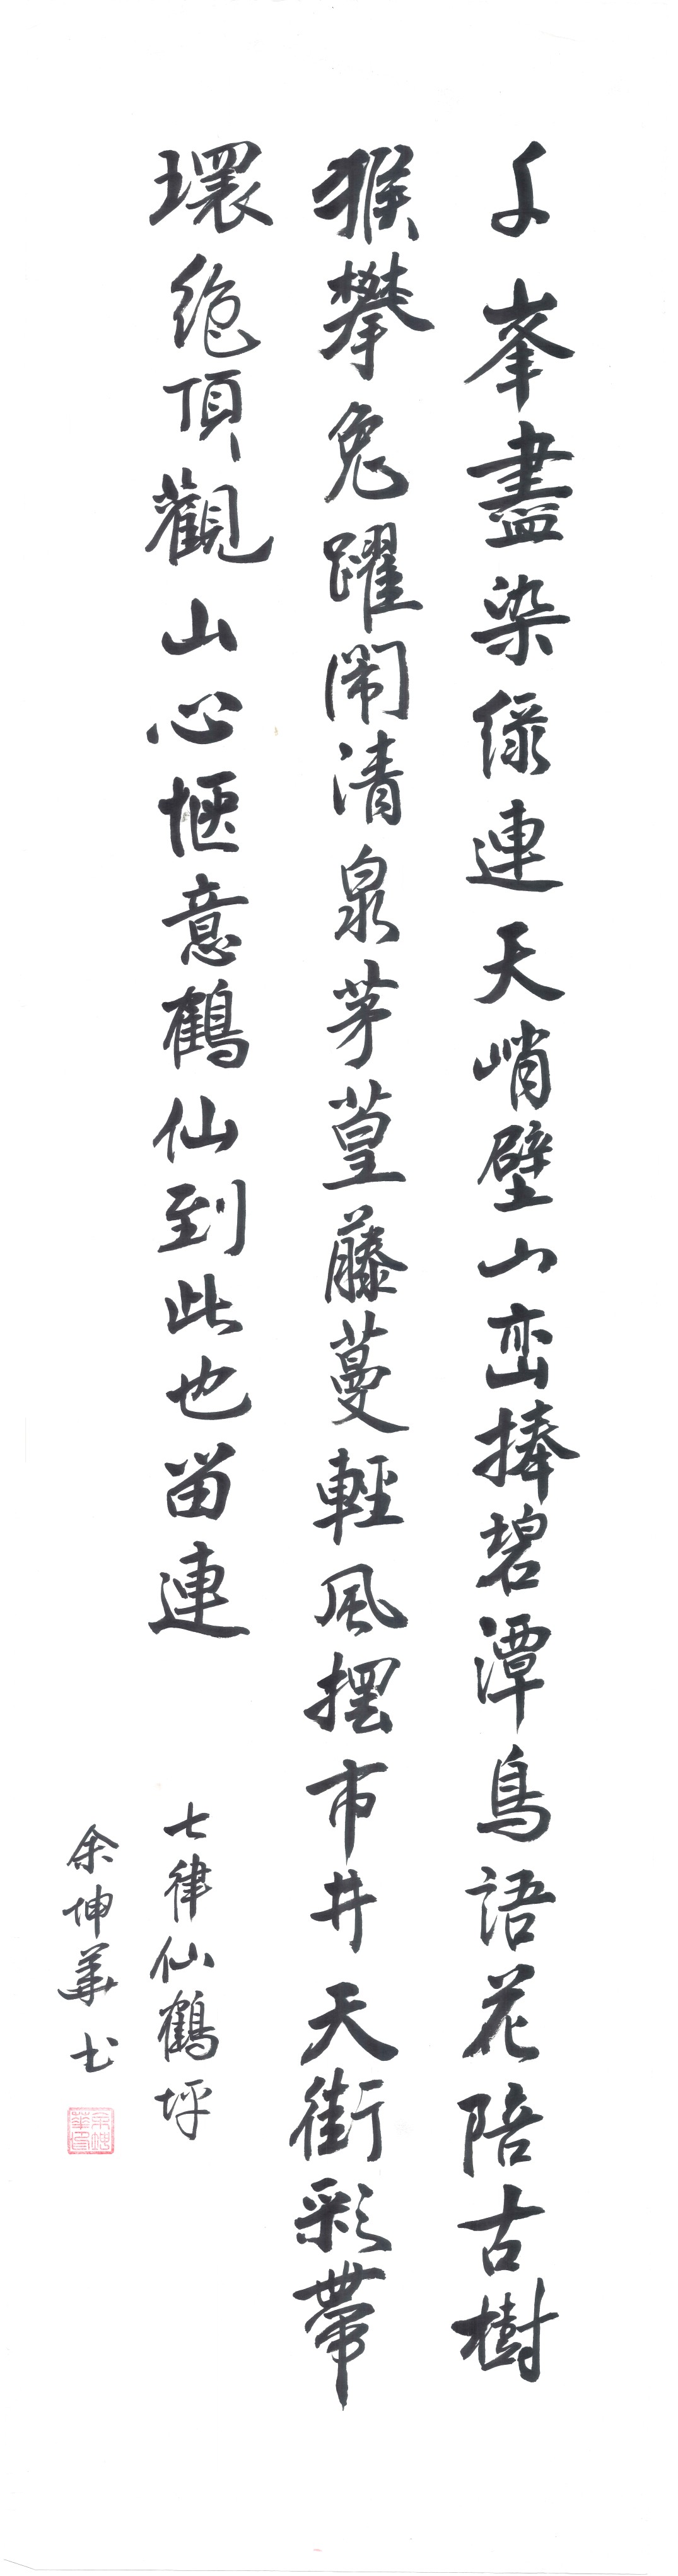 千峯盡染綠連天峭壁山峦捧碧潭鳥語花陪古樹
猴攀兔躍鬧清泉茅菒藤蔓輕風摆市井天街彩帶
環绝頂觀山心惬意鶴仙到此也留連
七律仙鶴坪
余坤華书